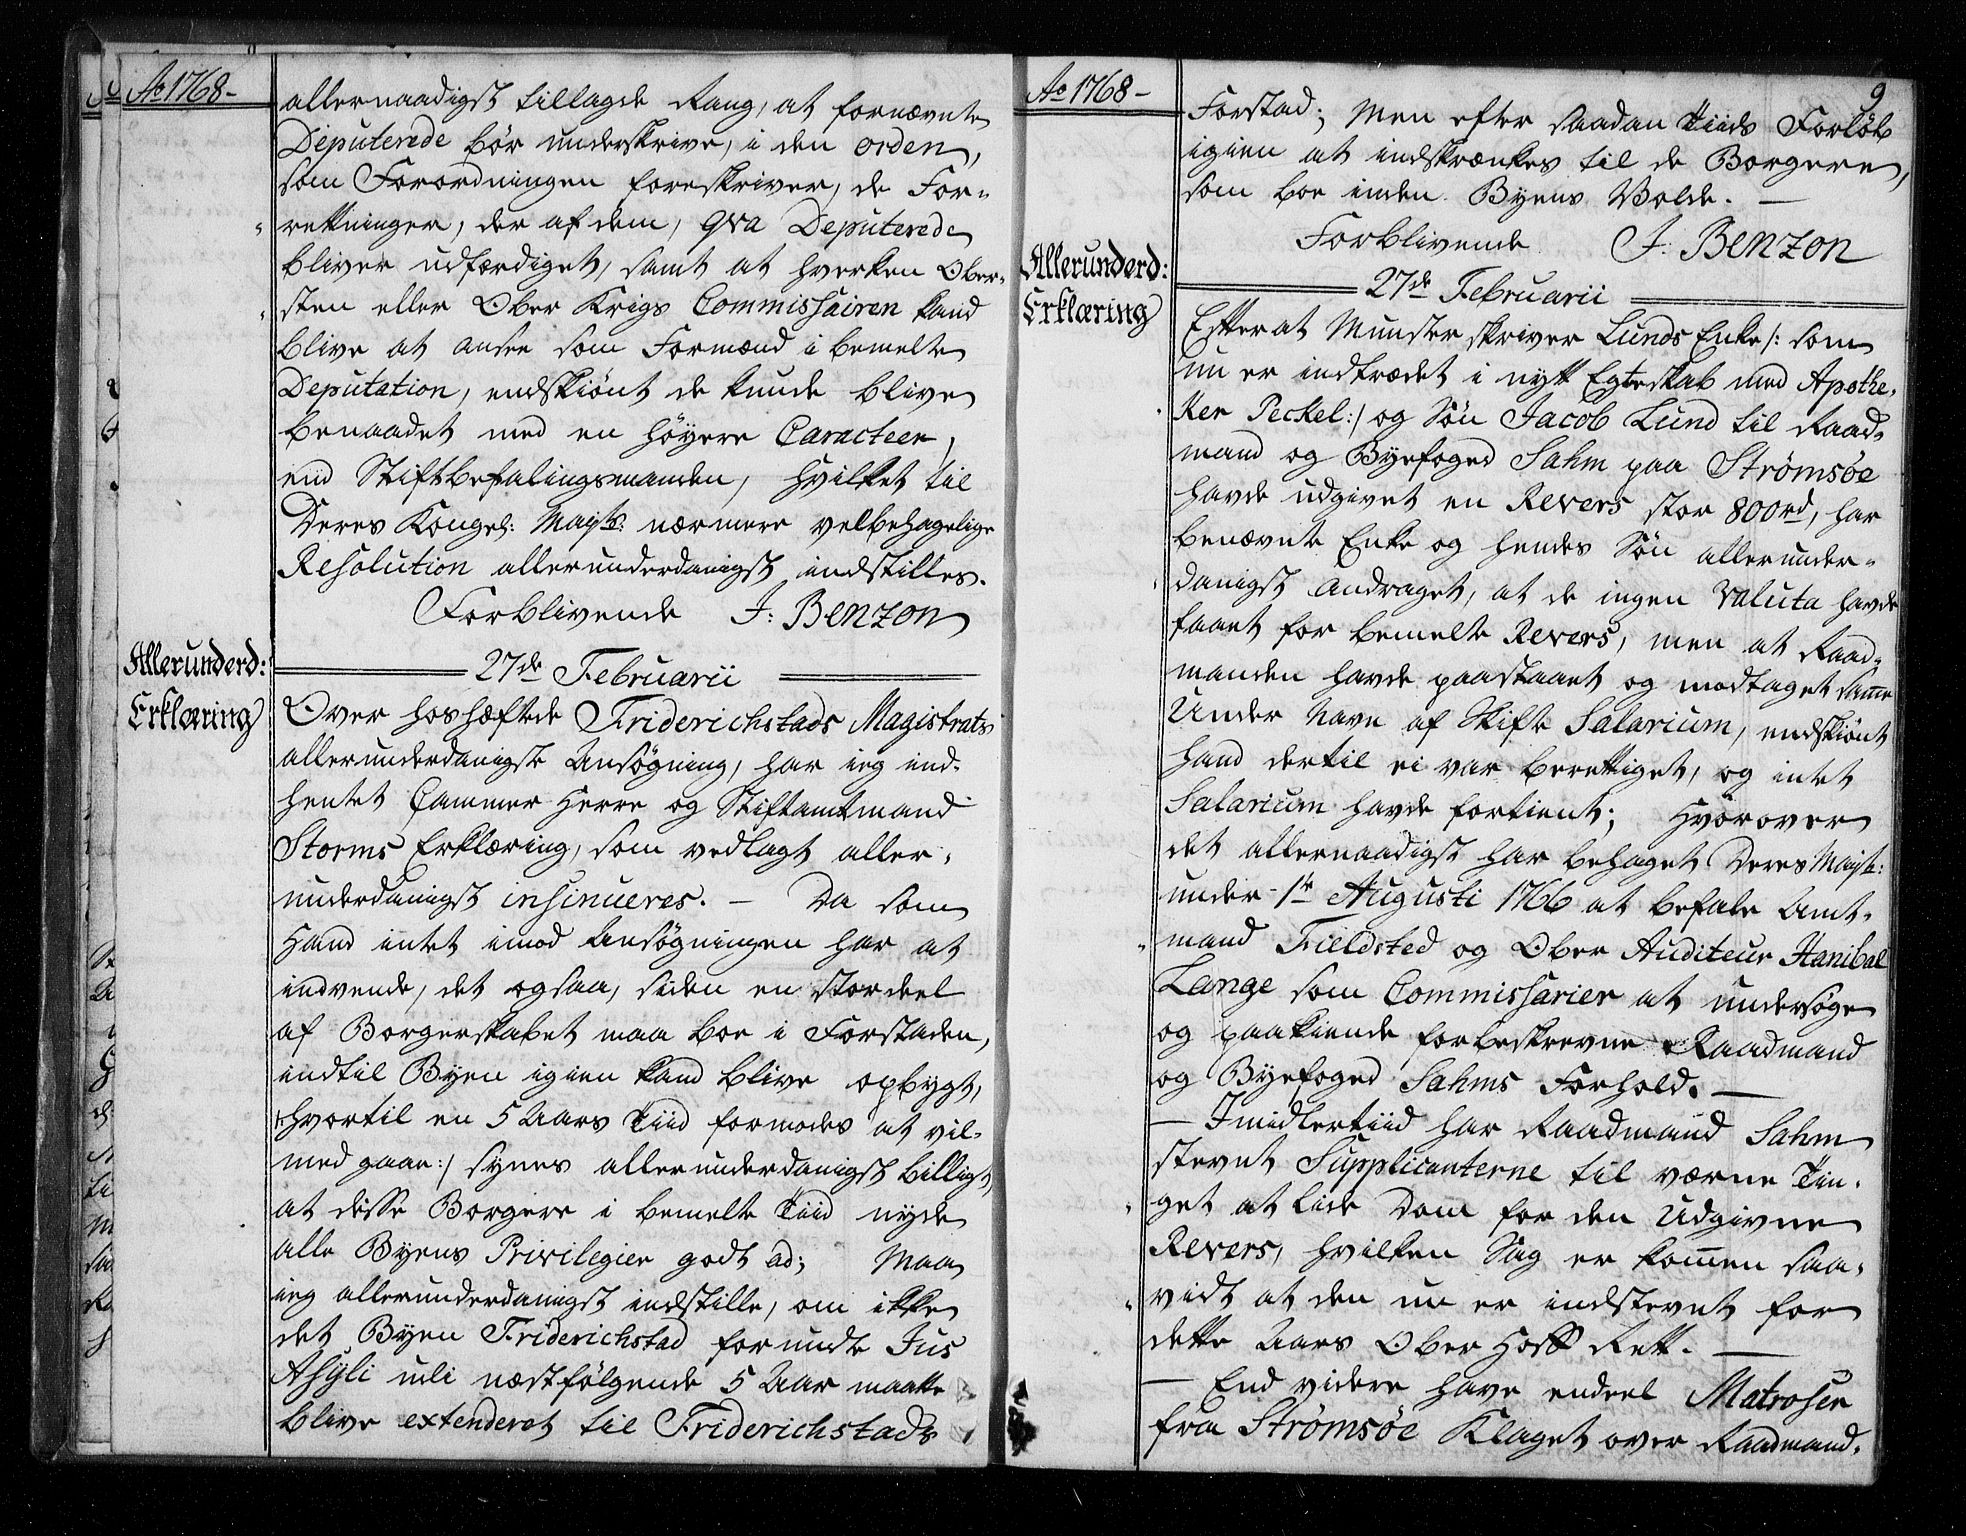 Ao 1768-
allernaadigst tillagde Rang, at fornævnte
Deputerede bör underskrive, i den orden,
som Forordningen foreskriver, de For-
rettninger, der af dem, qva Deputerede
bliver udfærdiget, samt at hverken Ober-
sten eller Ober Krigs Commissairen kand
blive at ansee som Formænd i bemelte
Deputation, endskiönt de kunde blive
benaadet med en höyere Caracteer,
end Stiftbefalingsmanden, hvilket til
Deres Kongel: Mayts: nærmere velbehagelige
Resolution allerunderdanigst indstilles.
Forblivende J: Benzon
Allerunderd:
Erklæring
27de Februarii
Over hoshæftede Friderichstads Magistrats
allerunderdanigste Ansögning, har ieg ind-
hentet Cammer Herre og Stiftamtmand
Storms Erklæring, som vedlagt aller-
underdanigst insinueres. - Da som
Hand intet imod Ansögningen har at
indvende, det ogsaa, siden en stor deel
af Borgerskabet maa boe i Forstaden,
indtil Byen igien kand blive opbygt,
/:hvortil en 5 Aars Tiid formodes at vil-
medgaae:/ synes allerunderdanigst billigt,
at disse Borgere i bemelte Tiid nyde
alle Byens Privilegier godt ad; Maa
ieg allerunderdanigst indstille, om ikke
det Byen Friderichstad forundte Jus
Asyli udi næstfölgende 5 Aar maatte
blive extenderet til Friderichstads
Ao 1768-
9
Forstad; Men efter saadan Tiids Forlöb
igien at indskrænkes til de Borgere,
som boe inden Byens Volde. -
Forblivende J: Benzon
Allerunderd:
Erklæring
27de Februarii
Efterat Munsterskriver Lunds Enke /: som
nu er indtrædet i nytt Egteskab med Apothe-
ker Peckel:/ og Sön Jacob Lund til Raad-
mand og Byefoged Sahm paa Strömsöe
havde udgivet en Revers stor 800rd, har
benævnte Enke og hendes Sön allerunder-
danigst andraget, at de ingen Valuta havde
faaet for bemelte Revers, men at Raad-
manden havde paastaaet og modtaget samme
Under Navn af Skifte Salarium, endskiönt
hand dertil ei var berettiget, og intet
Salarium havde fortient; Hvorover
det allernaadigst har behaget Deres Mayts:
under 1te Augusti 1766 at befale Amt-
mand Fieldsted og Ober Auditeur Hanibal
Lange som Commissarier at undersöge
og paakiende forbeskrevne Raadmand
og Byefoged Sahms Forhold. -
- Imidlertiid har Raadmand Sahm
stevnt Supplicanterne til værne Tin-
get at lide Dom for den Udgivne
Revers, hvilken Sag er kommen saa-
vidt at den nu er indstevnt for
dette Aars Ober Hoff Rett. -
- End videre have endeel Matroser
fra Strömsöe Klaget over Raadmand-